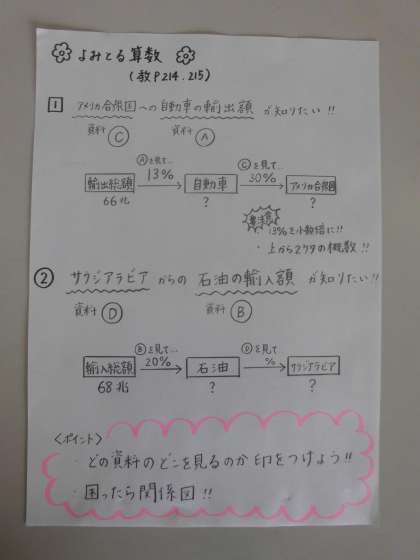 よみとる算数
(教P214.215)
1 アメリカ合衆国への自動車の輸出額 が知りたい!!
資料Ⓒ 資料Ⓐ
Ⓐを見て… Ⓒを見て…
13% 30%
輸出総額 自動車 アメリカ合衆国
66兆 ? ?
要注意
13%を小数倍に!!
・上から2ケタの概数!!
② サウジアラビアからの 石油の輸入額 が知りたい!!
資料Ⓓ 資料Ⓑ
Ⓑを見て… Ⓓを見て
20% %
輸入総額 石油 サウジアラビア
68兆 ? ?
<ポイント>
・どの資料のどこを見るのか印をつけよう!!
・困ったら関係図!!